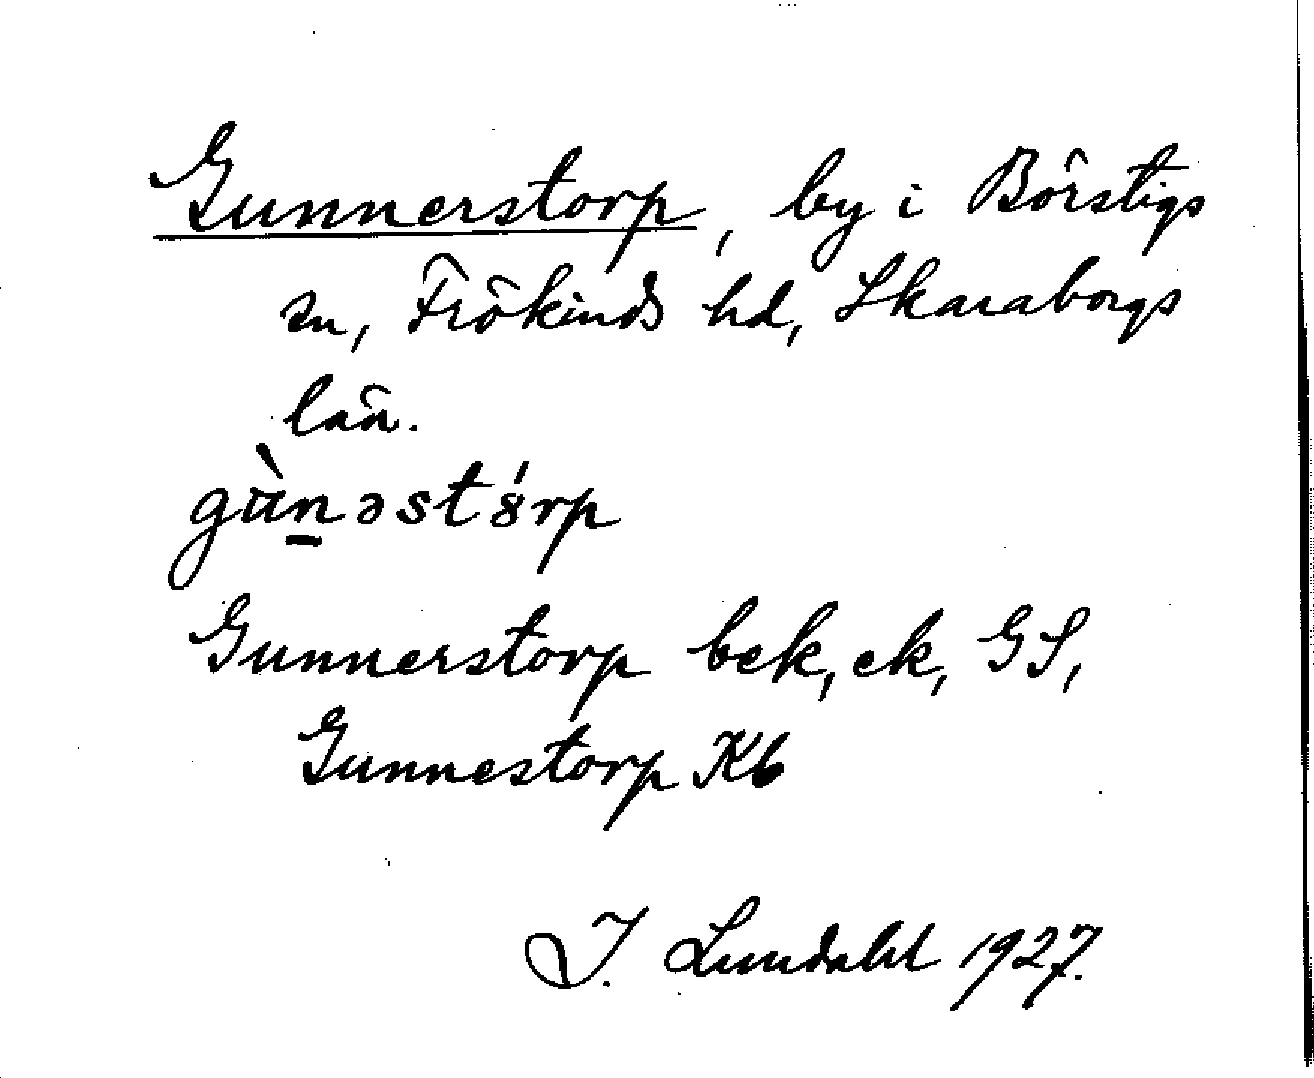 Gunnerstorp, by i Börstigs
sn, Frökinds hd, Skaraborgs
län.
gànəstórp
Gunnerstorp bek, ek, GS,
Gunnestorp Kb
I. Lundahl 1927.